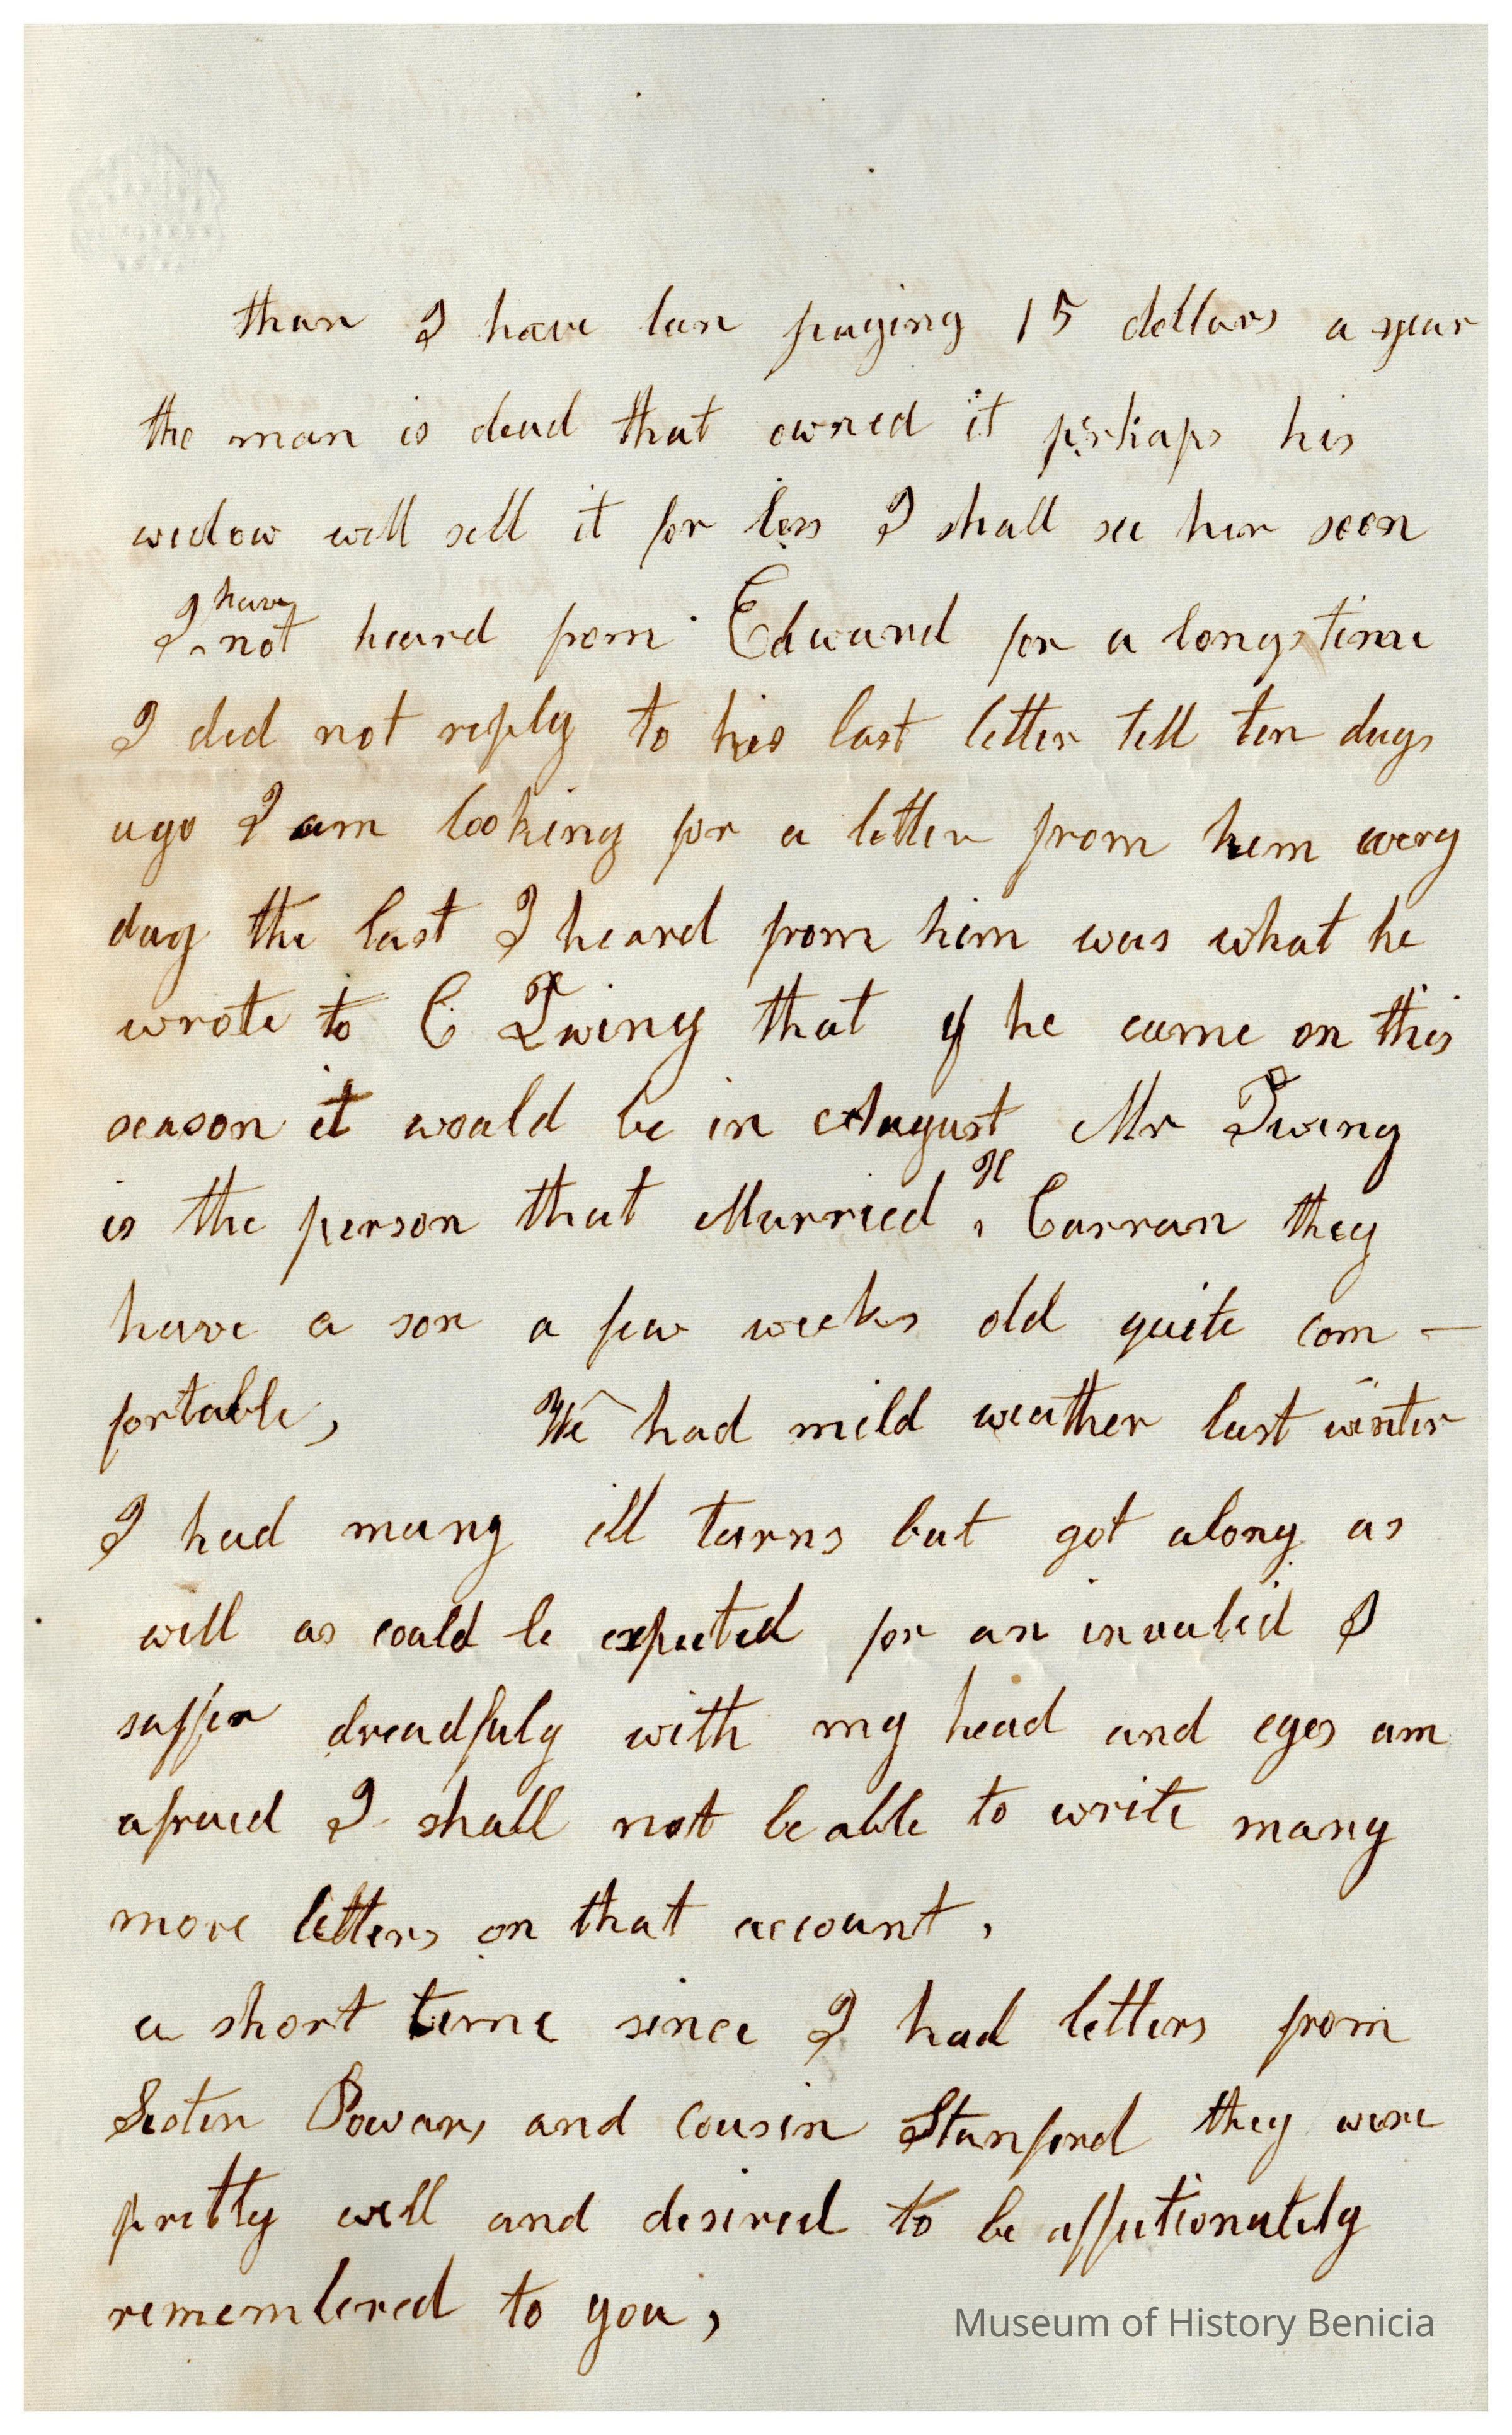 than I have ben paying 15 dollars a year
the man is dead that owned it perhaps his
widow will sell it for less I shall see her soon
I have not heard from Edward for a long time
I did not reply to his last letter till ten days
ago I am looking for a letter from him every
day the last I heard from him was what he
wrote to C Twing that if he came on this
season it would be in August Mr Twing
is the person that Married H Carran they
have a son a few weeks old quite com-
fortable, We had mild weather last winter
I had many ill turns but got along as
well as could be expected for an invalid I
suffer dreadfuly with my head and eyes am
afraid I shall not be able to write many
more letters on that account,
a short time since I had letters from
Sister Powars and cousin Stanford they were
pretty well and desired to be affectionately
remembered to you,
Museum of History Benicia